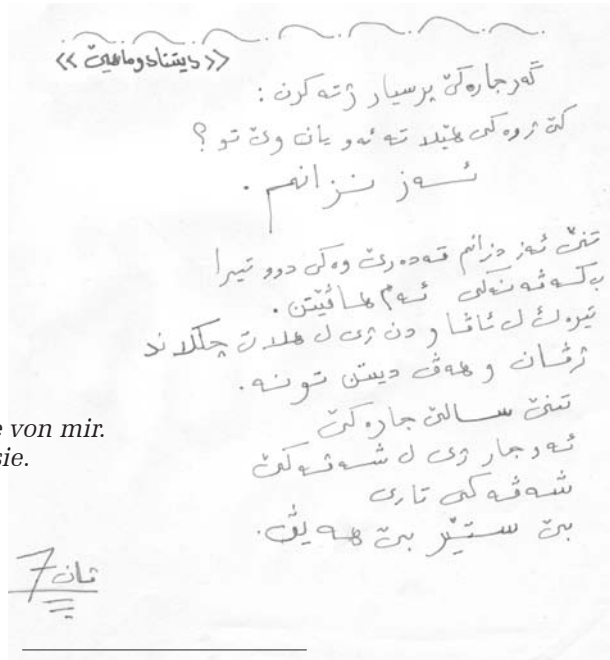 «دیتنا دوماهیێ»
گەر جارەکێ پرسیار ژ تە کرن :
کێ ژ وە کی هێلا تە ئەو یان وێ تو ؟
ئەز نزانم .
تنێ ئەز دزانم قەدەرێ وەکی دوو تیرا
ب کەڤەنەکی ئەم هاڤێتن .
تیرەك ل ئاڤا و دن ژی ل هلات چکلاند
ژڤان و هەڤ دیتن تونە .
تنێ سالێ جارەکێ
ئەو جار ژی ل شەڤەکێ
شەڤەکی تاری
بێ ستێر بێ هەیڤ .
ڤان 7
e von mir.
sie.